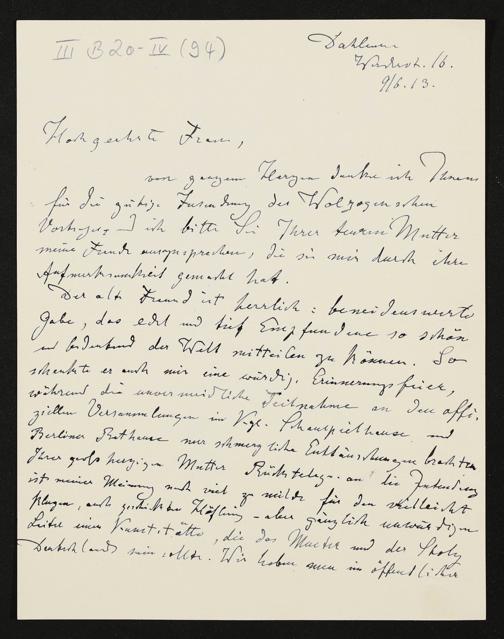 III B 20-IV (94)
Dahlem
Werderstr. 16.
9/6.13.
Hochgeehrte Frau,
von ganzem Herzen danke ich Ihnen
für die gütige Zusendung des Wolzogenschen
Vortrages und ich bitte Sie Ihrer teueren Mutter
meine Freude auszusprechen, die sie mir durch ihre
Aufmerksamkeit gemacht hat.
Der alte Freund ist herrlich: beneidenswerte
Gabe, das edel und tief Empfundene so schön
und bedeutend der Welt mitteilen zu können. So
schenkte er auch mir eine würdige Erinnerungsfeier,
während die unvermeidliche Teilnahme an den offi-
ziellen Versammlungen im Kgl. Schauspielhause und
Berliner Rathause nur schmerzliche Enttäuschungen brachten.
Ihrer großherzigen Mutter an die Intendanz
ist meiner Meinung nach viel zu milde für den vielleicht
klugen, auch geschickten Höfling – aber gänzlich unwürdigen
Leiter einer Kunststätte, die das Muster und der Stolz
Deutschlands sein sollte. Wir haben nun im öffentlichen